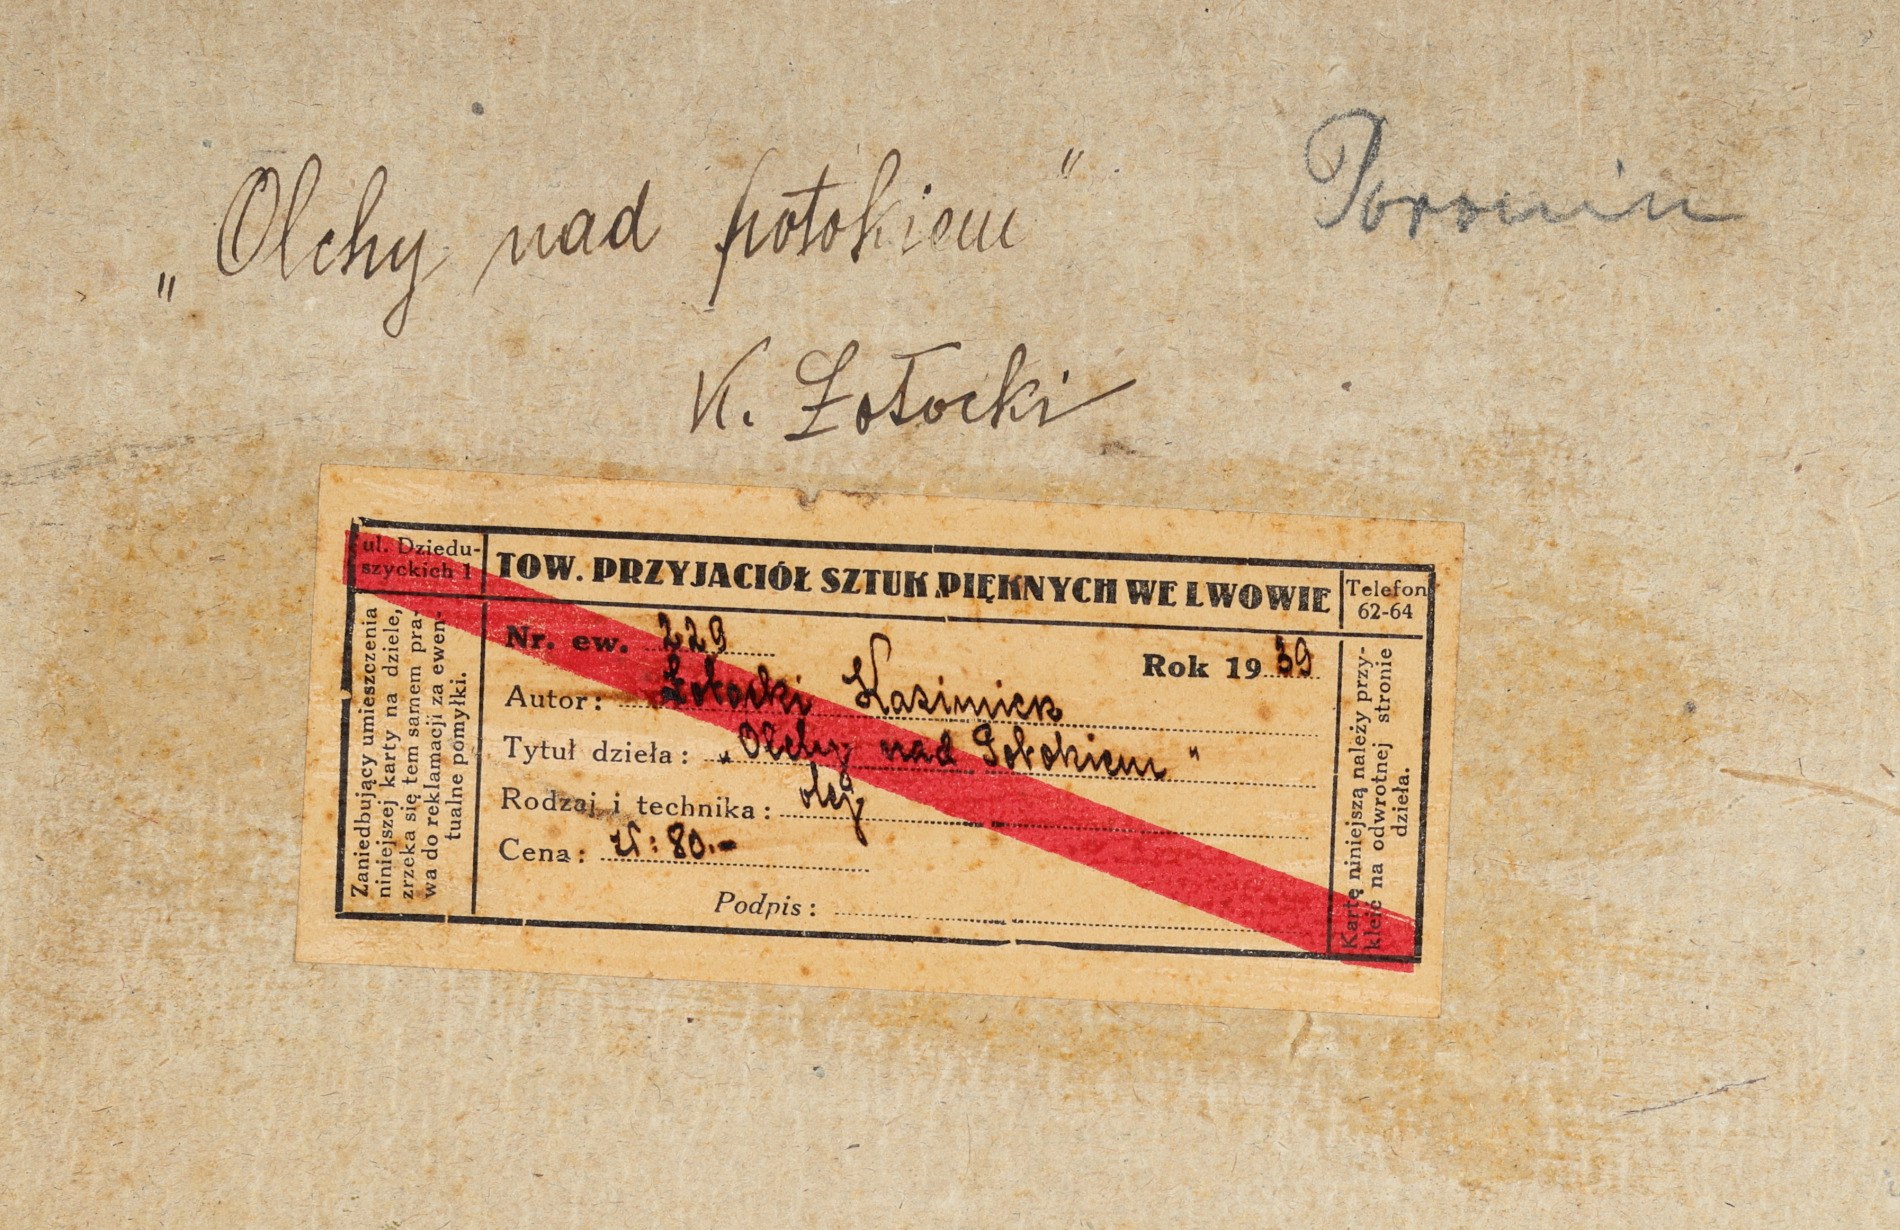 „Olchy nad potokiem"
Poronin
K. Żotocki
ul. Dziedu-
szyckich 1
TOW. PRZYJACIÓŁ SZTUK PIĘKNYCH WE LWOWIE
Telefon
62-64
Zaniedbujący umieszczenia
niniejszej karty na dziele,
zrzeka się tem samem pra-
wa do reklamacji za ewen-
tualne pomyłki.
Nr. ew. 229
Rok 1939
Autor: Żotocki Kazimierz
Tytuł dzieła: „Olchy nad Potokiem"
Rodzaj i technika: olej
Cena: zł: 80.-
Podpis:
Kartę niniejszą należy przy-
kleić na odwrotnej stronie
dzieła.